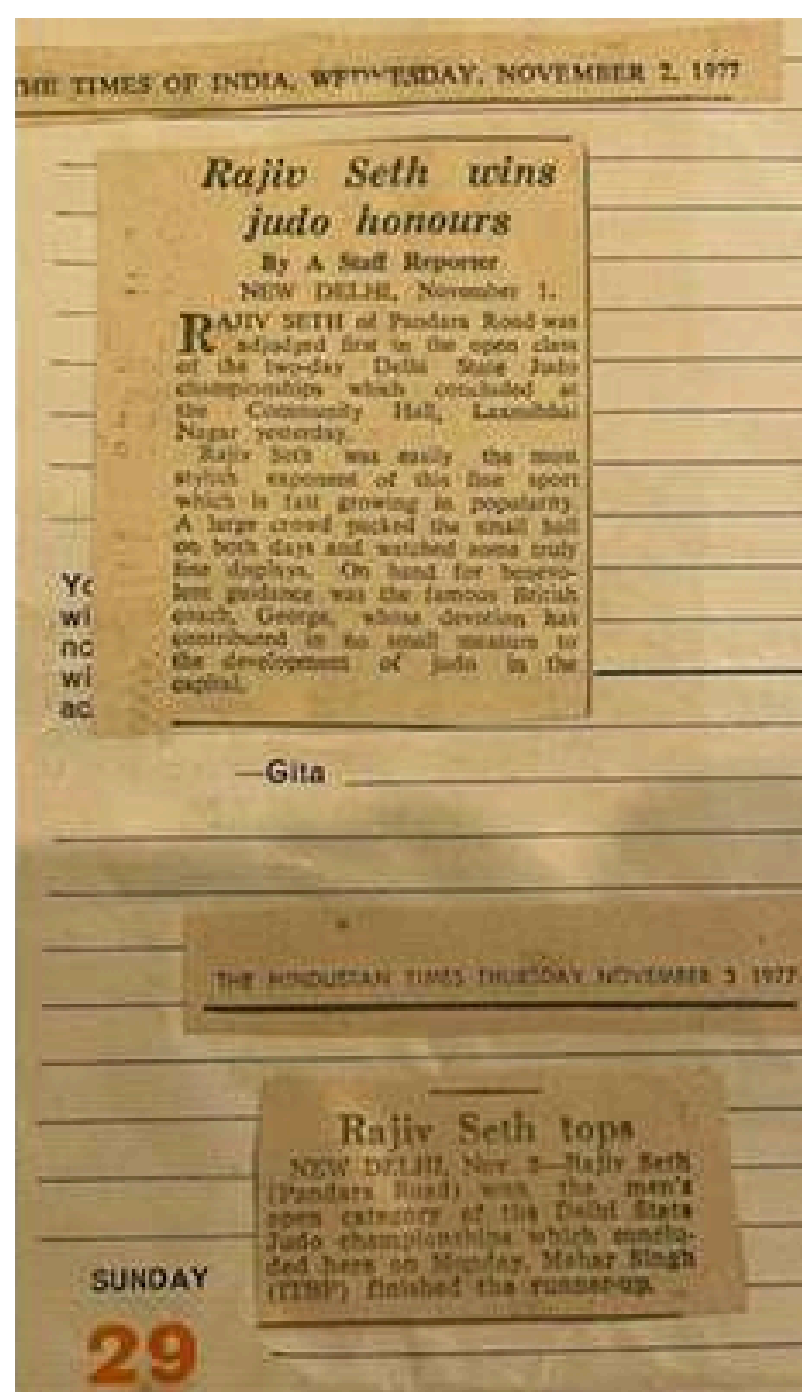 THE TIMES OF INDIA, WEDNESDAY, NOVEMBER 2, 1977
Rajiv Seth wins
judo honours
By A Staff Reporter
NEW DELHI, November 1.
RAJIV SETH of Pandara Road was
adjudged first in the open class
of the two-day Delhi State Judo
championships which concluded at
the Community Hall, Laxmibhai
Nagar yesterday.
Rajiv Seth was easily the most
stylish exponent of this fine sport
which is fast growing in popularity.
A large crowd packed the small hall
on both days and watched some truly
fine displays. On hand for benevo-
lent guidance was the famous British
coach, George, whose devotion has
contributed in no small measure to
the development of judo in the
capital.
Yo
wi
no
wi
ac
—Gita
THE HINDUSTAN TIMES THURSDAY NOVEMBER 3 1977
Rajiv Seth tops
NEW DELHI, Nov. 2—Rajiv Seth
(Pandara Road) won the men's
open category of the Delhi State
Judo championships which conclu-
ded here on Monday. Mehar Singh
finished the runner-up.
SUNDAY
29